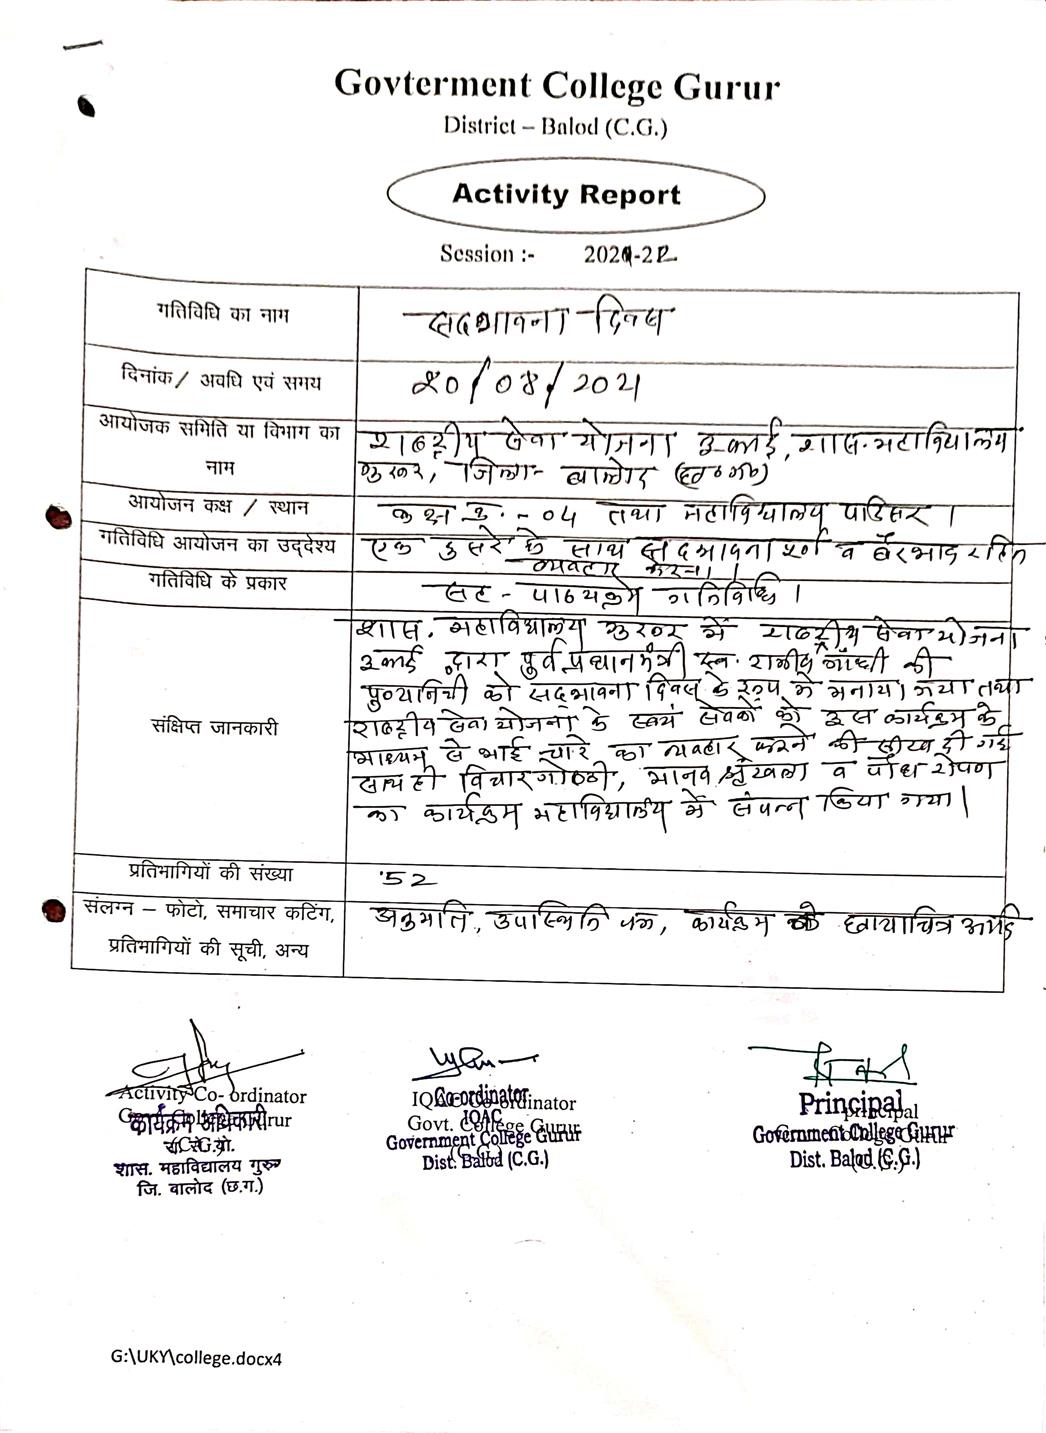 Govterment College Gurur
District – Balod (C.G.)
Activity Report
Session :- 2021-22
गतिविधि का नाम
सदभावना दिवस
दिनांक/ अवधि एवं समय
20/08/2021
आयोजक समिति या विभाग का
नाम
राष्ट्रीय सेवा योजना इकाई, शास. महाविद्यालय
गुरुर, जिला- बालोद (छ०ग०)
आयोजन कक्ष / स्थान
कक्ष क्र.-04 तथा महाविद्यालय परिसर ।
गतिविधि आयोजन का उद्देश्य
एक दुसरे के साथ सदभावना पूर्ण व बैरभाव रहित
व्यवहार करना ।
गतिविधि के प्रकार
सह - पाठ्यक्रम गतिविधि ।
संक्षिप्त जानकारी
शास. महाविद्यालय गुरुर में राष्ट्रीय सेवा योजना
इकाई द्वारा पुर्व प्रधानमंत्री स्व. राजीव गाँधी की
पुण्यतिथी को सद्भावना दिवस के रूप में मनाया गया तथा
राष्ट्रीय सेवा योजना के स्वयं सेवकों को इस कार्यक्रम के
माध्यम से भाई चारे का व्यवहार करने की सीख दी गई
साथ ही विचारगोष्ठी, मानव श्रृंखला व पौध रोपण
का कार्यक्रम महाविद्यालय में संपन्न किया गया।
प्रतिभागियों की संख्या
52
संलग्न – फोटो, समाचार कटिंग,
प्रतिभागियों की सूची, अन्य
अनुमति, उपास्थिति पत्रक, कार्यक्रम के छायाचित्र आदि
Activity Co- ordinator
कार्यक्रम अधिकारी
रा.से.यो.
शास. महाविद्यालय गुरुर
जि. बालोद (छ.ग.)
IQAC Co-ordinator
Govt. College Gurur
Co-ordinator
IQAC
Government College Gurur
Dist. Balod (C.G.)
principal
Principal
Government College Gurur
Dist. Balod (C.G.)
G:\UKY\college.docx4